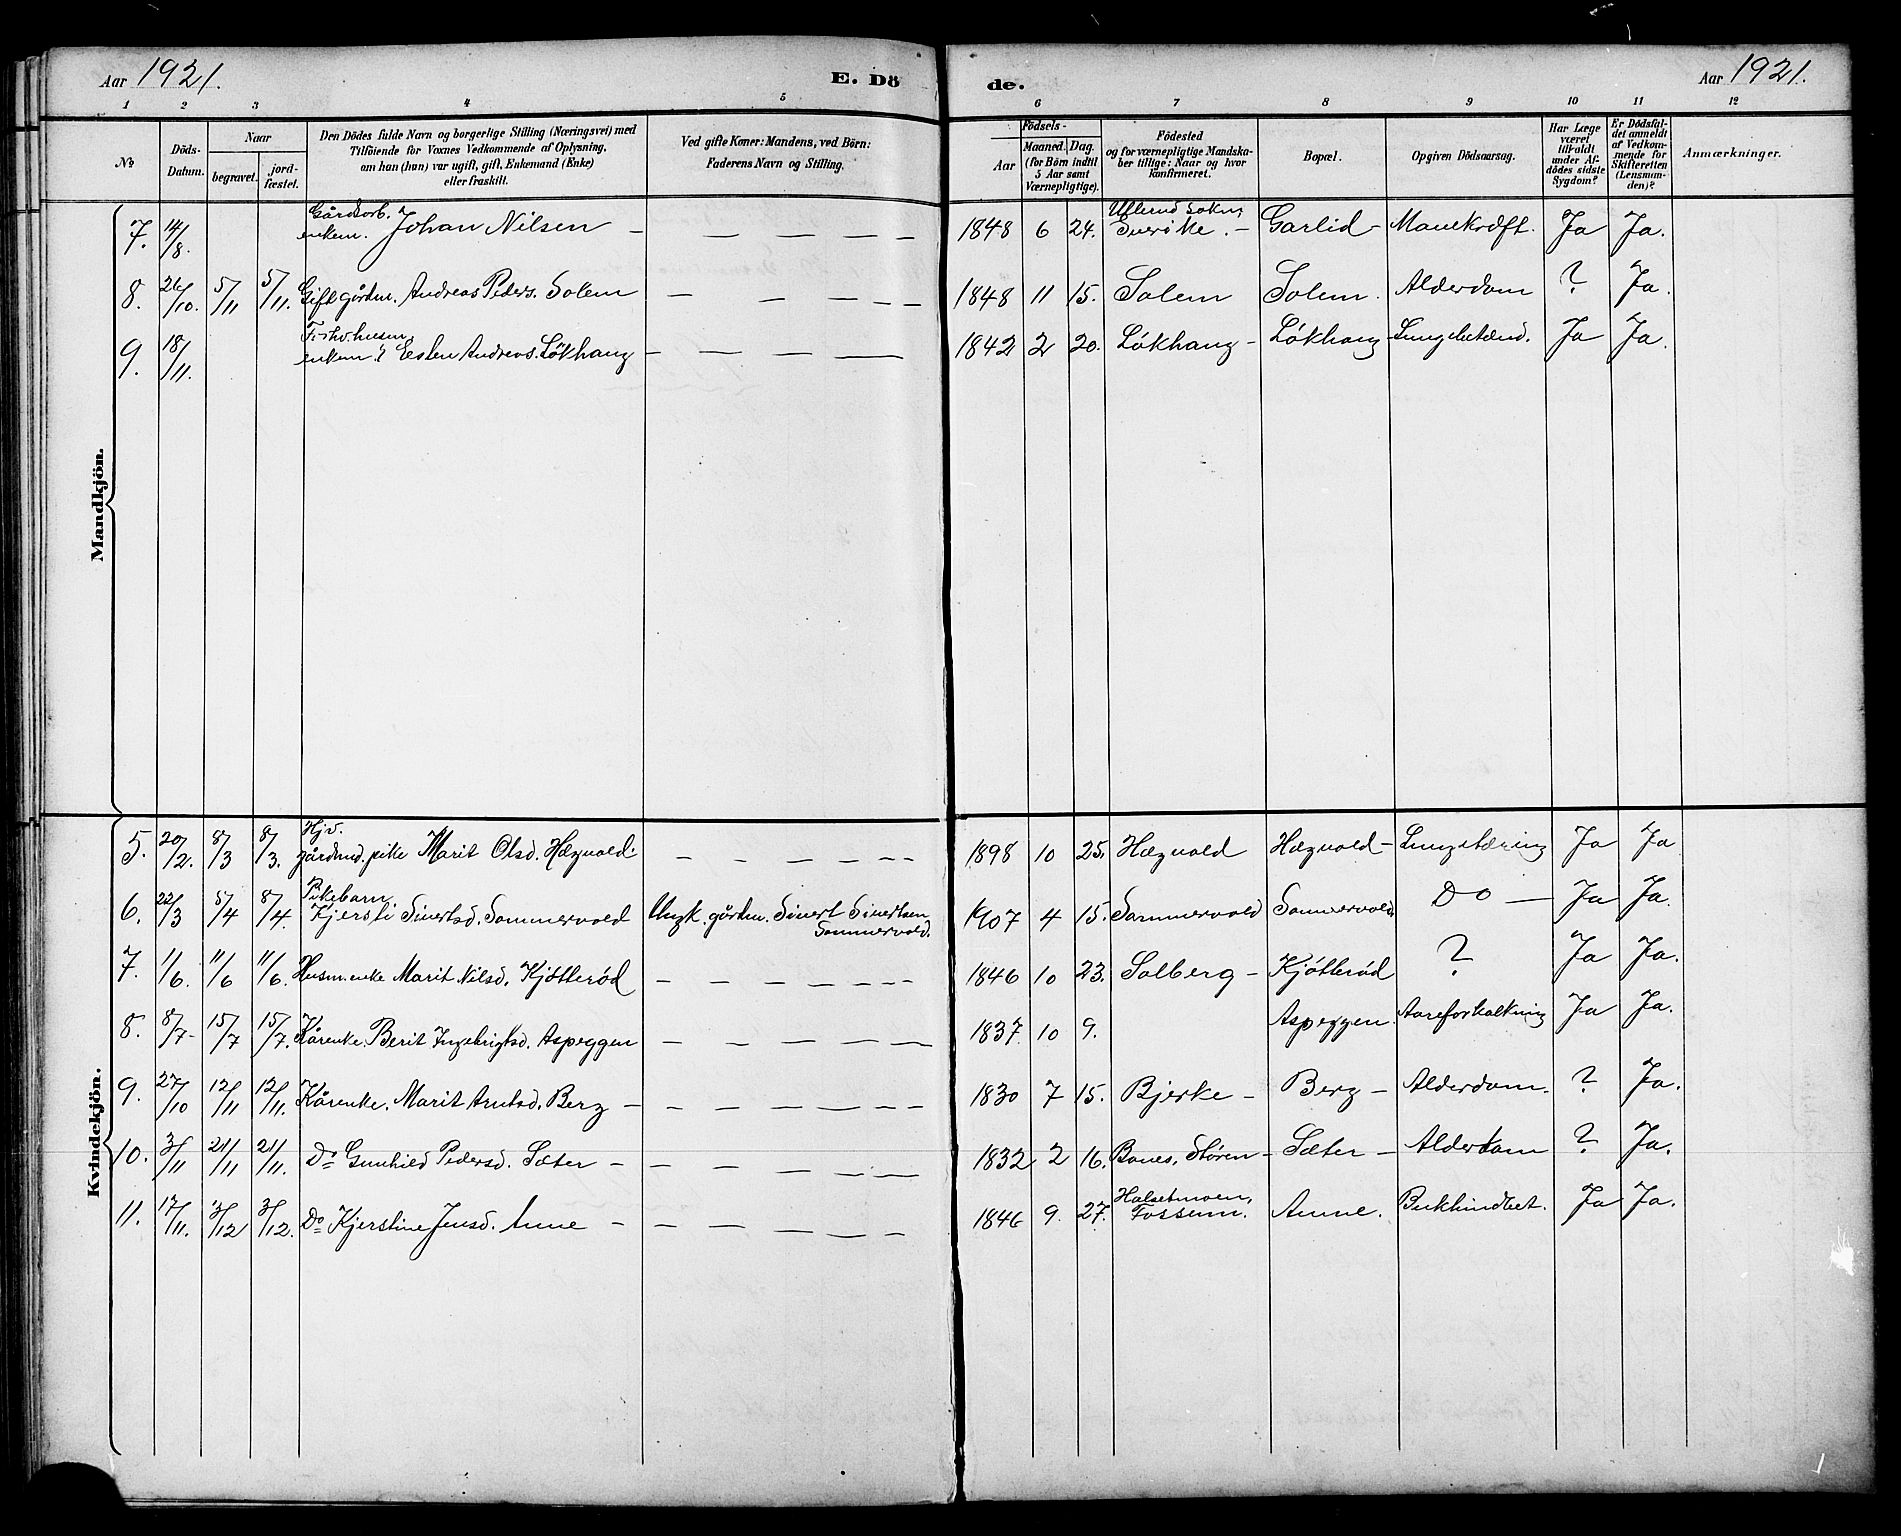 Aar 1921. E. Dö de. Aar 1921.
1 2 3 4 5 6 7 8 9 10 11 12
№ Döds-Datum. Naar begravet. jord-fæstet. Den Dödes fulde Navn og borgerlige Stilling (Næringsvei) med Tilföiende for Voxnes Vedkommende af Oplysning, om han (hun) var ugift, gift, Enkemand (Enke) eller fraskilt. Ved gifte Koner: Mandens, ved Börn: Faderens Navn og Stilling. Födsels- Aar Maaned. Dag. (for Börn indtil 5 Aar samt Værnepligtige). Födested og for værnepligtige Mandska-ber tillige: Naar og hvor konfirmeret. Bopæl. Opgiven Dödsaarsag. Har Læge været tilkaldt under Af-dödes sidste Sygdom? Er Dödsfal-det anmeldt af Vedkom-mende for Skifteretten (Lensman-den)? Anmærkninger.
Mandkjön.
7. 14/8. Gårdarb. enkem. Johan Nilsen – — — — — 1848 6 24. sokn, Sverike. – Garlid – Mavekræft. Ja Ja.
8. 26/10. 5/11 5/11. Gift gårdm. Andreas Peders. Solem — — — — 1848 11 15. Solem Solem. Alderdom ? Ja.
9. 18/11. enkem. Esten Andreas. Løkhaug — — — — — 1842 2 20. Løkhaug – Løkhaug – Lungebetænd. Ja Ja.
Kvindekjön.
5. 20/2. 8/3 8/3. Hjv. pike Marit Olsd. Hægvold. — — — — — 1898 10 25. Hægvold Hægvold – Lungetæring Ja Ja
6. 22/3 5/4 8/4. Pikebarn Kjersti Sivertsd. Sommervold Ungk. gårdm. Sivert Sivertsen Sommervold. 1907 4 15. Sommervold Sommervold Do — Ja Ja.
7. 1/6. 11/6 11/6. Husm.enke Marit Nilsd. Kjøtterød — — — — — 1846 10 23. Solberg – Kjøtterød ? Ja Ja.
8. 8/7. 15/7 15/7. Kårenke. Berit Ingebrigtsd. Aspeggen — — — — — 1837 10 9. Aspeggen. Aareforkalkning Ja Ja.
9. 27/10 12/11 12/11. Kårenke. Marit Arntsd. Berg – — — — — 1830 7 15. Bjerke – Berg – Alderdom. ? Ja.
10. 3/11 21/11 21/11. Do Gunhild Pedersd. Sæter – — — — — 1832 2 16. Bones, Støren – Sæter – Alderdom ? Ja.
11. 17/11. 3/12 3/12. Do Kjerstine Jensd. Amne – — — — — 1846 9. 27. Halsetmoen, Fossum. Amne. Bukhindbet. Ja Ja.